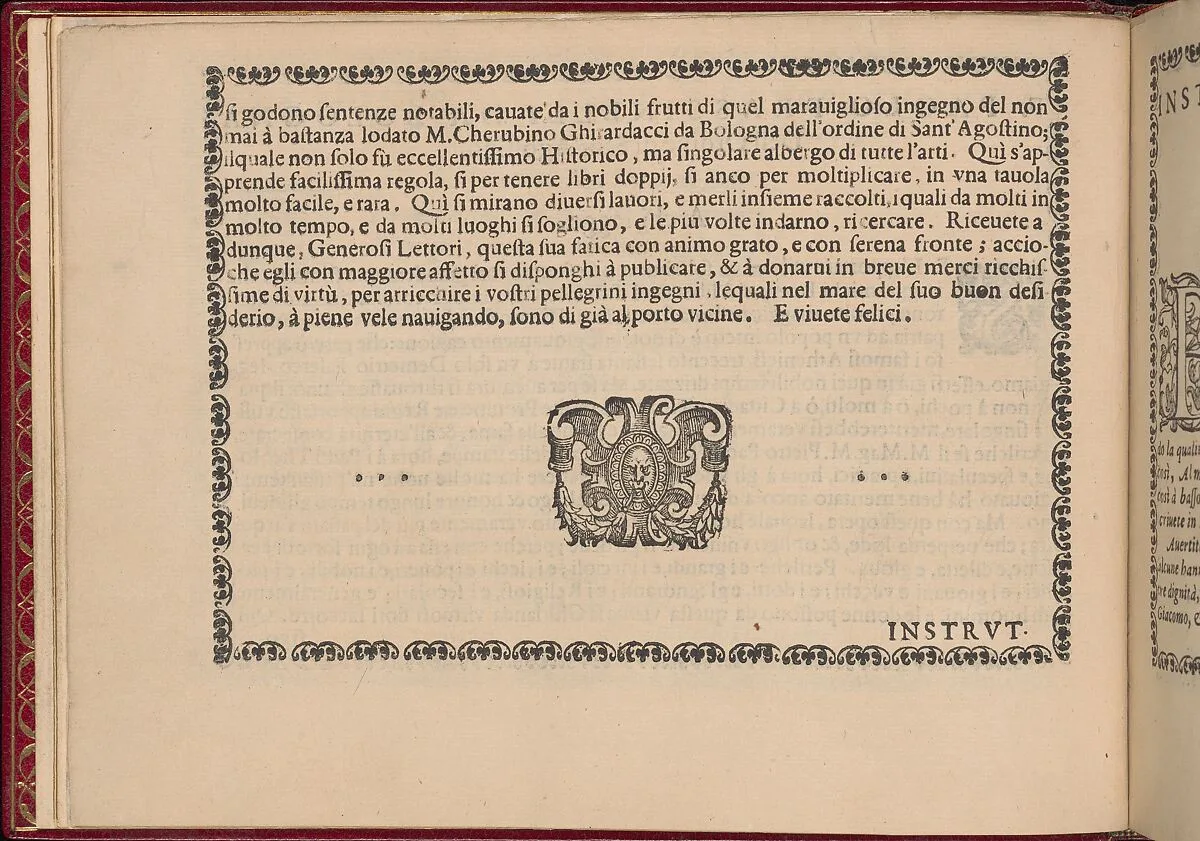 ſi godono ſentenze notabili, cauate da i nobili frutti di quel marauiglioſo ingegno del non
mai à baſtanza lodato M. Cherubino Ghirardacci da Bologna dell'ordine di Sant'Agoſtino;
ilquale non ſolo fù eccellentiſſimo Hiſtorico, ma ſingolare albergo di tutte l'arti. Quì s'ap-
prende faciliſſima regola, ſi per tenere libri doppij, ſi anco per moltiplicare, in vna tauola
molto facile, e rara. Quì ſi mirano diuerſi lauori, e merli inſieme raccolti, i quali da molti in
molto tempo, e da molti luoghi ſi ſogliono, e le più volte indarno, ricercare. Riceuete a
dunque, Generoſi Lettori, queſta ſua fatica con animo grato, e con ſerena fronte; accio-
che egli con maggiore affetto ſi diſponghi à publicare, & à donarui in breue merci ricchiſ-
ſime di virtù, per arricchire i voſtri pellegrini ingegni, lequali nel mare del ſuo buon deſi
derio, à piene vele nauigando, ſono di già al porto vicine. E viuete felici.
INSTRVT.
INST
do la qualit
criuete in
Auertit
alcune han
re dignità,
Giacomo, &